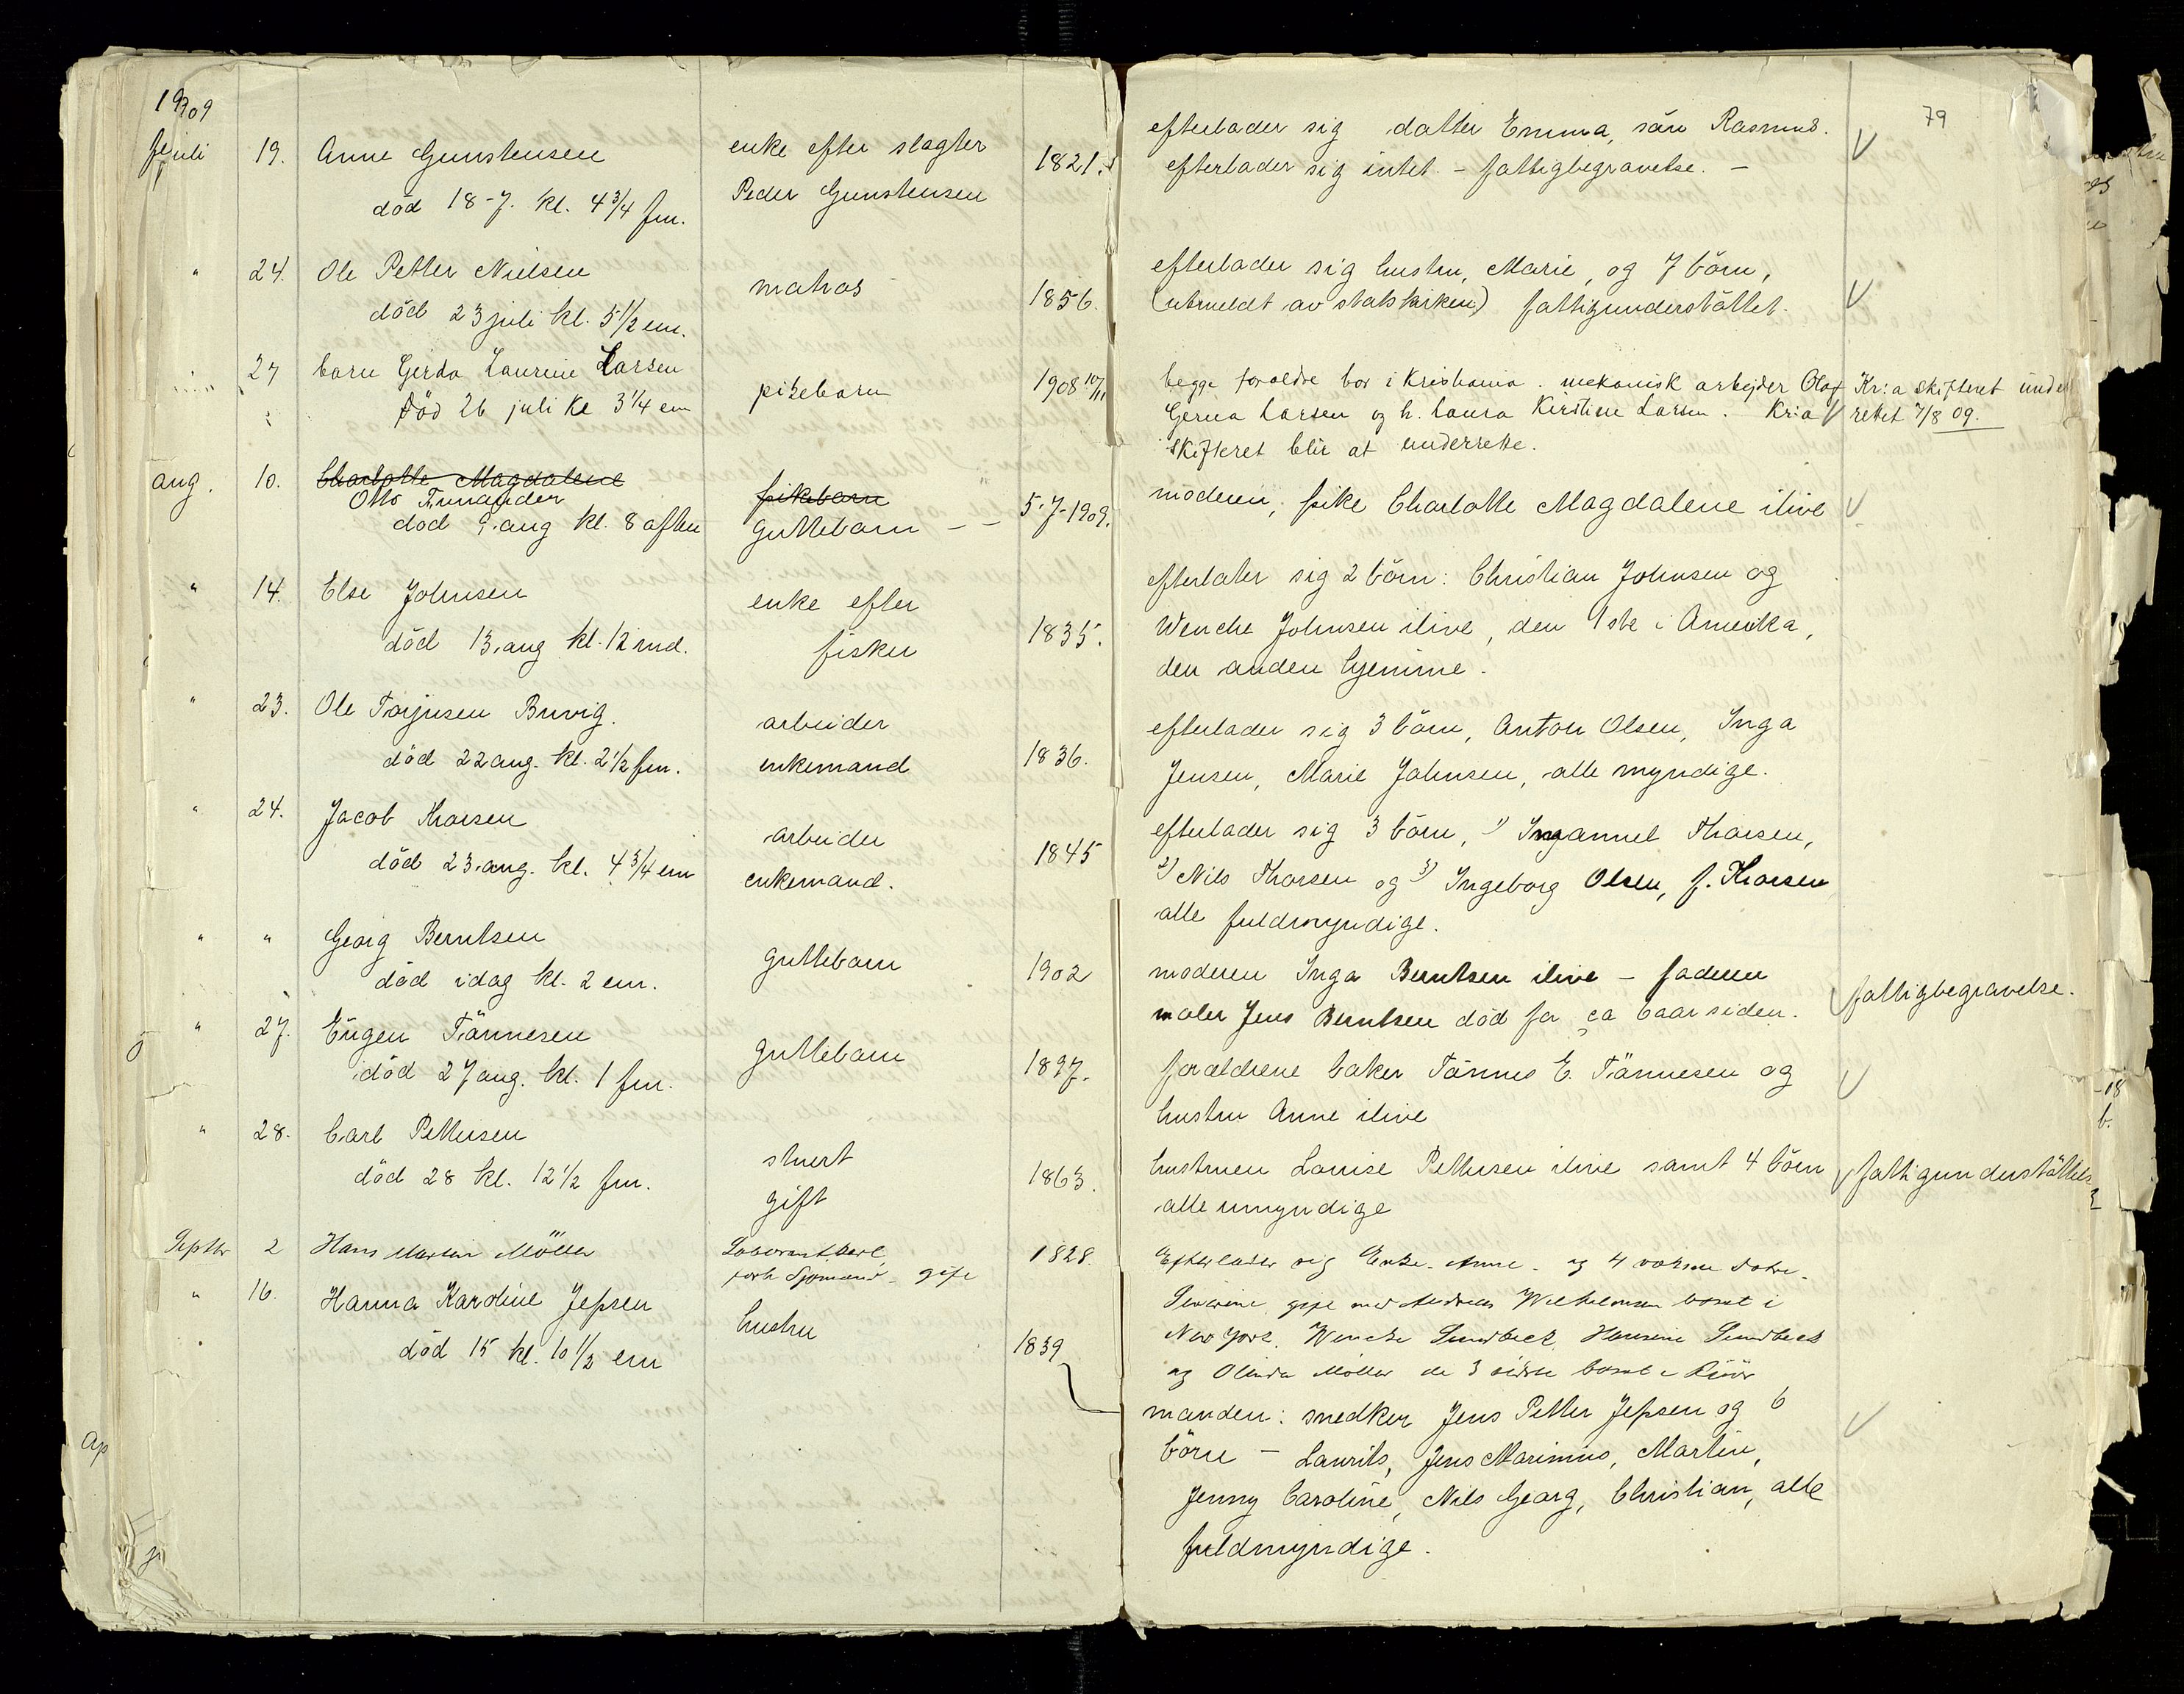 1909
79
juli 19. Anne Gunstensen enke efter slagter 1821. efterlader sig datter Emma, sön Rasmus.
död 18-7. kl. 4 3/4 fm. Peder Gunstensen efterlader sig intet. - fattigbegravelse. -
" 24. Ole Petter Nielsen matros 1856. efterlader sig hustru, Marie, og 7 börn,
död 23 juli kl. 5 1/2 em. (utmeldt av statskirken) fattigunderstöttet.
27 barn Gerda Laurine Larsen pikebarn 1908 10/11 begge foraeldre bor i Kristiania. mekanisk arbeider Olaf Kr:a Skifteret under
död 26 juli kl 3 1/4 em Larsen og h. Laura Kirstine Larsen. Kr:a rettet 7/8 09.
Skifteret blir at underrette.
aug. 10. Charlotte Magdalene pikebarn
Otto
död 9. aug kl. 8 aften guttebarn - - 5-7-1909. moderen, pike Charlotte Magdalene ilive
" 14. Else Johnsen enke efter efterlater sig 2 börn: Christian Johnsen og
död 13. aug kl. 12 md. fisker 1835. Wenche Johnsen ilive, den 1ste i Amerika,
den anden hjemme.
" 23. Ole Torjusen Buvig. arbeider efterlader sig 3 börn, Anton Olsen, Inga
död 22 aug. kl. 2 1/2 fm. enkemand 1836. Jensen, Marie Johnsen, alle myndige.
" 24. Jacob Thorsen arbeider 1845 efterlader sig 3 börn, 1) Thorsen,
död 23. aug. kl. 4 3/4 em enkemand. 2) Nils Thorsen og 3) Ingeborg Olsen, f. Thorsen
alle fuldmyndige.
" " Georg Berntsen guttebarn 1902 moderen Inga Berntsen ilive - faderen
död idag kl. 2 em. maler Jens Berntsen död for ca 6 aar siden. fattigbegravelse.
" 27. Eugen Tönnesen guttebarn 1897. foraeldrene baker Tönnes E. Tönnesen og
död 27 aug. kl. 1 fm. hustru Anne ilive
" 28. Carl Pettersen stuert 1863. hustruen Louise Pettersen ilive samt 4 börn fattigunderstöttels
död 28 kl. 12 1/2 fm. gift alle umyndige
Septbr 2 Hans Martin Möller forh Sjömand - gift 1828. Efterlader sig Enke - Anne - og 4 voksne
gift med Andreas Wilhelmsen bosat i
New York. Wencke Sundbeck, Hansine Sundbeck
og Olinda Möller de 3 sidste bosat i
" 16. Hanna Karoline Jepsen hustru 1839
död 15 kl. 10 1/2 em
manden: snedker Jens Petter Jepsen og 6
börn - Laurits, Jens Marinius, Martin,
Jenny Caroline, Nils Georg, Christian, alle
fuldmyndige.